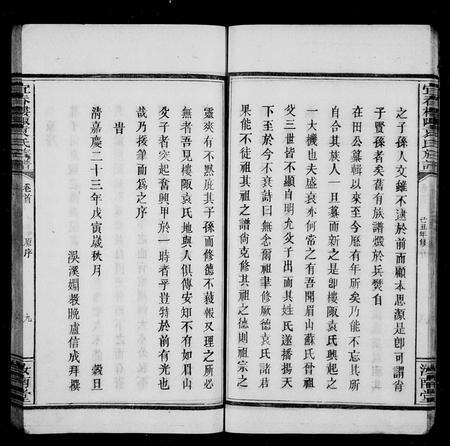 之子孫人文雖不逮於前而顧本思源是即可謂肯
子賢孫者矣舊有族譜燬於兵燹自
在田公纂輯以來至今歷有年所矣乃能不忘其所
自合其族人一旦纂而新之是卽樓陳袁氏興起之
一大機也夫盛衰亦何常之有吾聞眉山蘇氏曾祖
父三世皆不顯自明允父子出而其姓氏遂播揚天
下至於今不衰詩曰無念爾祖聿修厥德袁氏諸君
果能不徒祖其祖之譜尚克修其祖之德則祖宗之
靈爽有不黙庇其子孫而修德不穫報又理之所必
無者吾見樓陳袁氏地與人俱傳安知不有如眉山
父子者突起舊興甲於一時者乎豈特於前有光也
哉乃援筆而爲之序
昔
清嘉慶二十三年戊寅歲秋月
穀旦
吳溪姻教晚盧信成拜撰
宜春樓陳袁氏族譜
卷首
原序
九
汝南堂
己丑年修